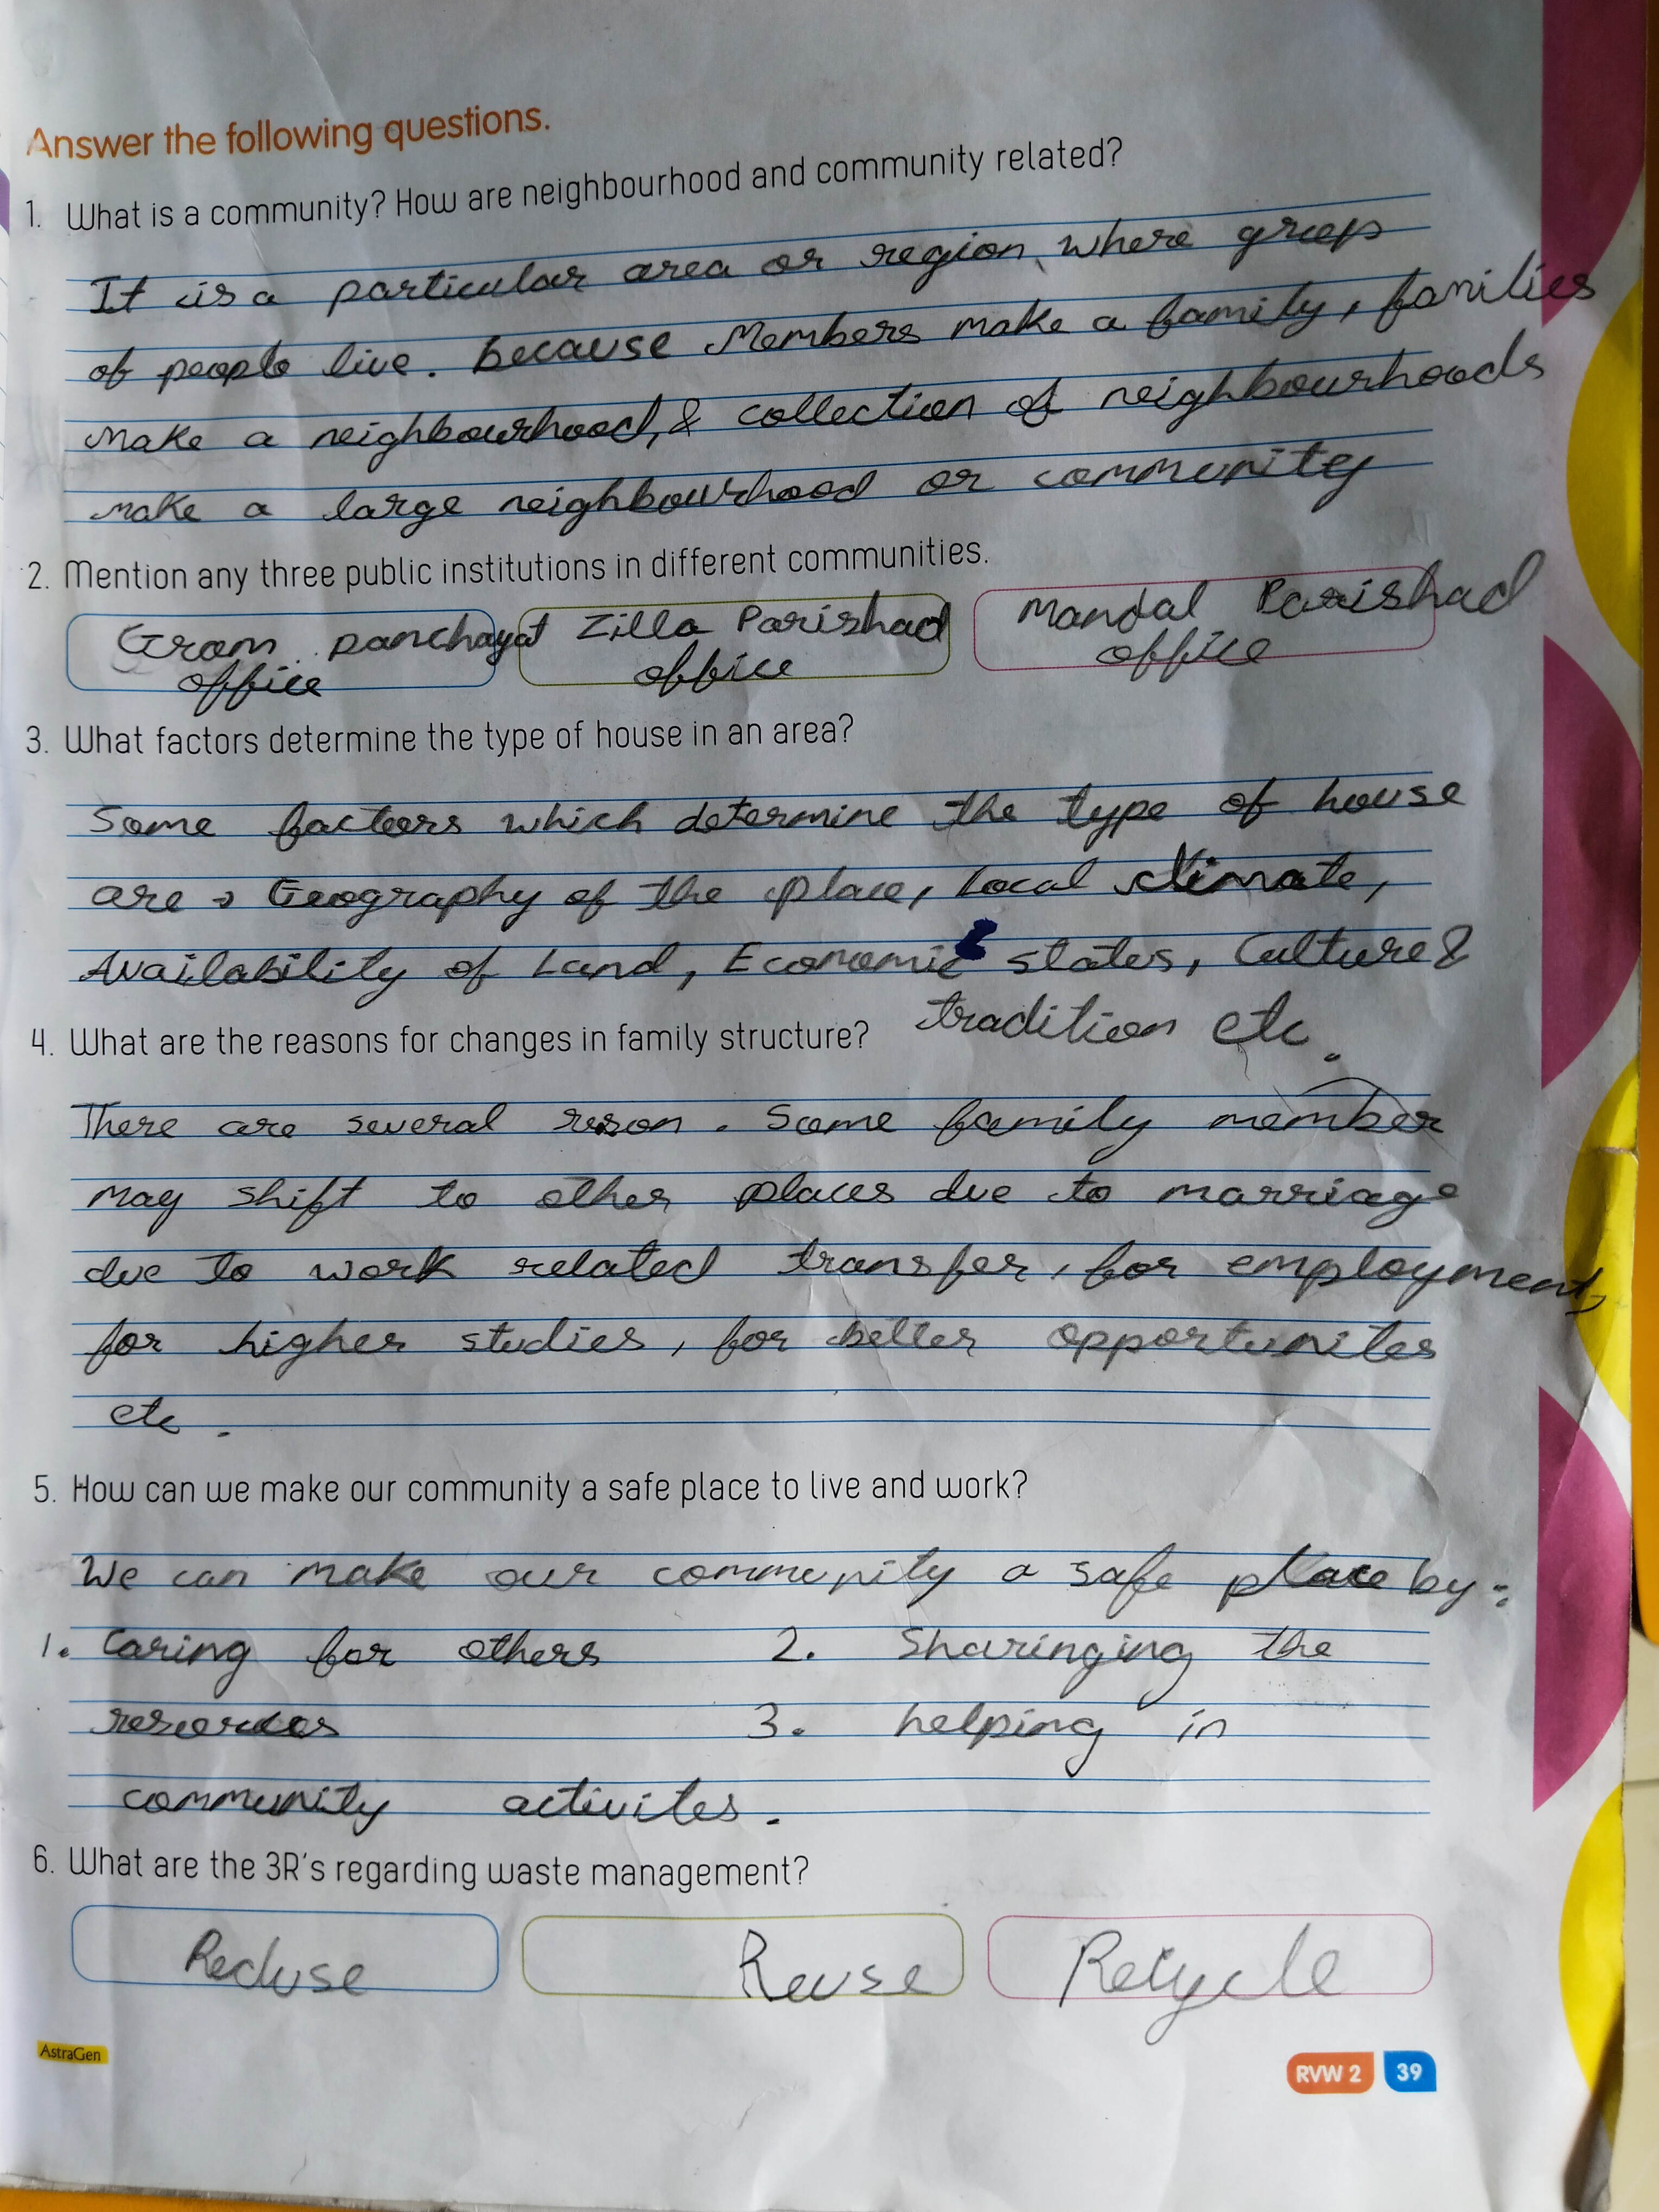 Answer the following questions.
1. What is a community? How are neighbourhood and community related?
It is a particular area or region, where groeps
of people live. because Members make a family, families
make a neighbourhood, & collection of neighbourhoods
make a large neighbourhood or community
2. Mention any three public institutions in different communities.
Gram panchayat office
Zilla Parishad office
Mandal Parishad office
3. What factors determine the type of house in an area?
Some factoors which determine the type of house
are → Geography of the place, Local climate,
Availability of Land, Economic states, Culture &
tradition etc.
4. What are the reasons for changes in family structure?
There are several reson. Some family member
may shift to other places due to marriage
due to work related transfer, for employment,
for higher studies, for better opportunites
etc.
5. How can we make our community a safe place to live and work?
We can make our community a safe place by:
1. Caring for others 2. Sharinging the
3. helping in
community activites.
6. What are the 3R's regarding waste management?
Reduse
Reuse
Recycle
AstraGen
RVW 2 39